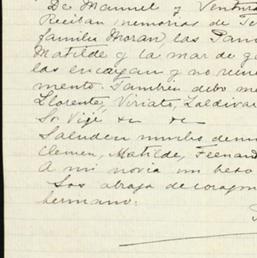 De Manuel y Ventura
Reciban memorias de Te
familia Morán, las
Matilde y la mar de
las encajan y no
mento. También debo
Llorente, Viriato, Zaldivar
Sr. Vigi &c &c
Saluden mucho
Clemen, Matilde, Fernand
A mi novia un beso
Los abraza de corazón
hermano: